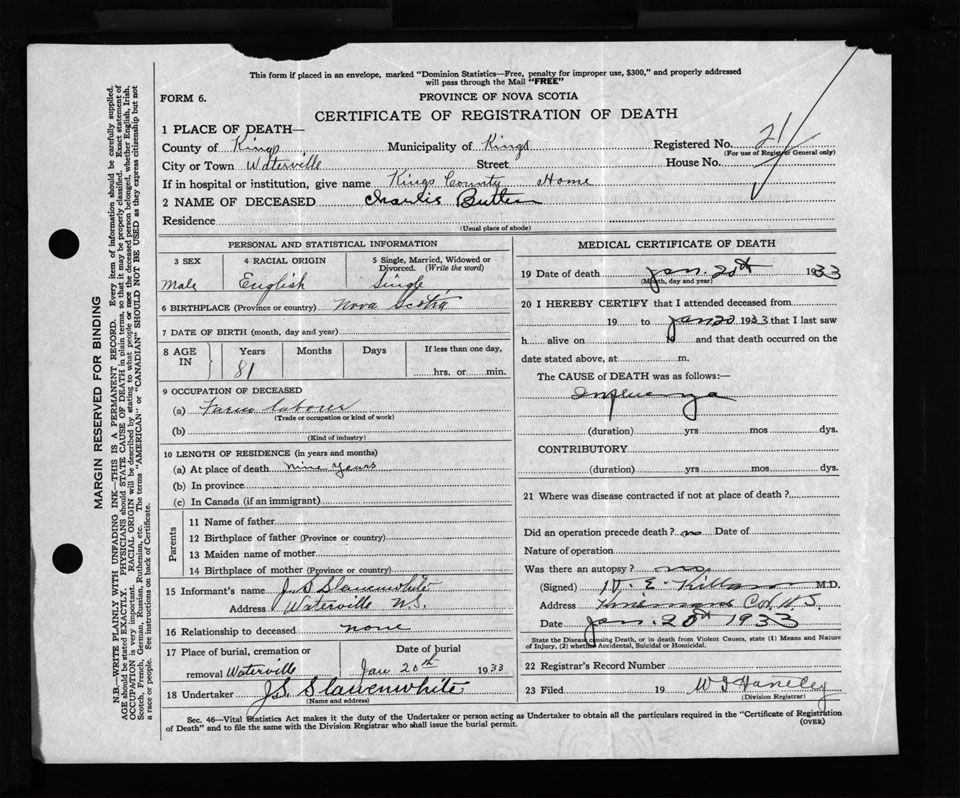 This form if placed in an envelope, marked "Dominion Statistics—Free, penalty for improper use, $300," and properly addressed
will pass through the Mail "FREE"
FORM 6.
PROVINCE OF NOVA SCOTIA
CERTIFICATE OF REGISTRATION OF DEATH
1 PLACE OF DEATH—
County of Kings Municipality of Kings Registered No. 21
(For use of Registrar General only)
City or Town Waterville Street House No.
If in hospital or institution, give name Kings County Home
2 NAME OF DECEASED Charlie Butler
Residence
(Usual place of abode)
PERSONAL AND STATISTICAL INFORMATION
3 SEX 4 RACIAL ORIGIN 5 Single, Married, Widowed or
Divorced. (Write the word)
Male English Single
6 BIRTHPLACE (Province or country) Nova Scotia
7 DATE OF BIRTH (month, day and year)
8 AGE IN Years Months Days If less than one day,
81 hrs. or min.
9 OCCUPATION OF DECEASED
(a) Farm laborer
(Trade or occupation or kind of work)
(b)
(Kind of industry)
10 LENGTH OF RESIDENCE (in years and months)
(a) At place of death nine years
(b) In province
(c) In Canada (if an immigrant)
Parents
11 Name of father
12 Birthplace of father (Province or country)
13 Maiden name of mother
14 Birthplace of mother (Province or country)
15 Informant's name J S Slauenwhite
Address Waterville N.S.
16 Relationship to deceased none
17 Place of burial, cremation or Date of burial
removal Waterville Jan 20th 1933
18 Undertaker J.S. Slauenwhite
(Name and address)
MEDICAL CERTIFICATE OF DEATH
19 Date of death Jan. 20th 1933
(Month, day and year)
20 I HEREBY CERTIFY that I attended deceased from
19 to Jan 20 1933 that I last saw
h alive on 19 and that death occurred on the
date stated above, at m.
The CAUSE of DEATH was as follows:—
Influenza
(duration) yrs mos dys.
CONTRIBUTORY
(duration) yrs mos dys.
21 Where was disease contracted if not at place of death?
Did an operation precede death? no Date of
Nature of operation
Was there an autopsy? no
(Signed) E Killam M.D.
Address Co. N.S.
Date Jan. 20th 1933
State the Disease causing Death, or in death from Violent Causes, state (1) Means and Nature
of Injury, (2) whether Accidental, Suicidal or Homicidal.
22 Registrar's Record Number
23 Filed 19
(Division Registrar)
Sec. 46—Vital Statistics Act makes it the duty of the Undertaker or person acting as Undertaker to obtain all the particulars required in the "Certificate of Registration
of Death" and to file the same with the Division Registrar who shall issue the burial permit. (OVER)
MARGIN RESERVED FOR BINDING
N.B.—WRITE PLAINLY WITH UNFADING INK—THIS IS A PERMANENT RECORD. Every item of information should be carefully supplied.
AGE should be stated EXACTLY. PHYSICIANS should STATE CAUSE OF DEATH in plain terms, so that it may be properly classified. Exact statement of
OCCUPATION is very important. RACIAL ORIGIN will be described by stating to what people or race the deceased person belonged, whether English, Irish,
Scotch, French, German, Russian, Ruthenian, etc. The terms "AMERICAN" or "CANADIAN" SHOULD NOT BE USED as they express citizenship but not
a race or people. See instructions on back of Certificate.